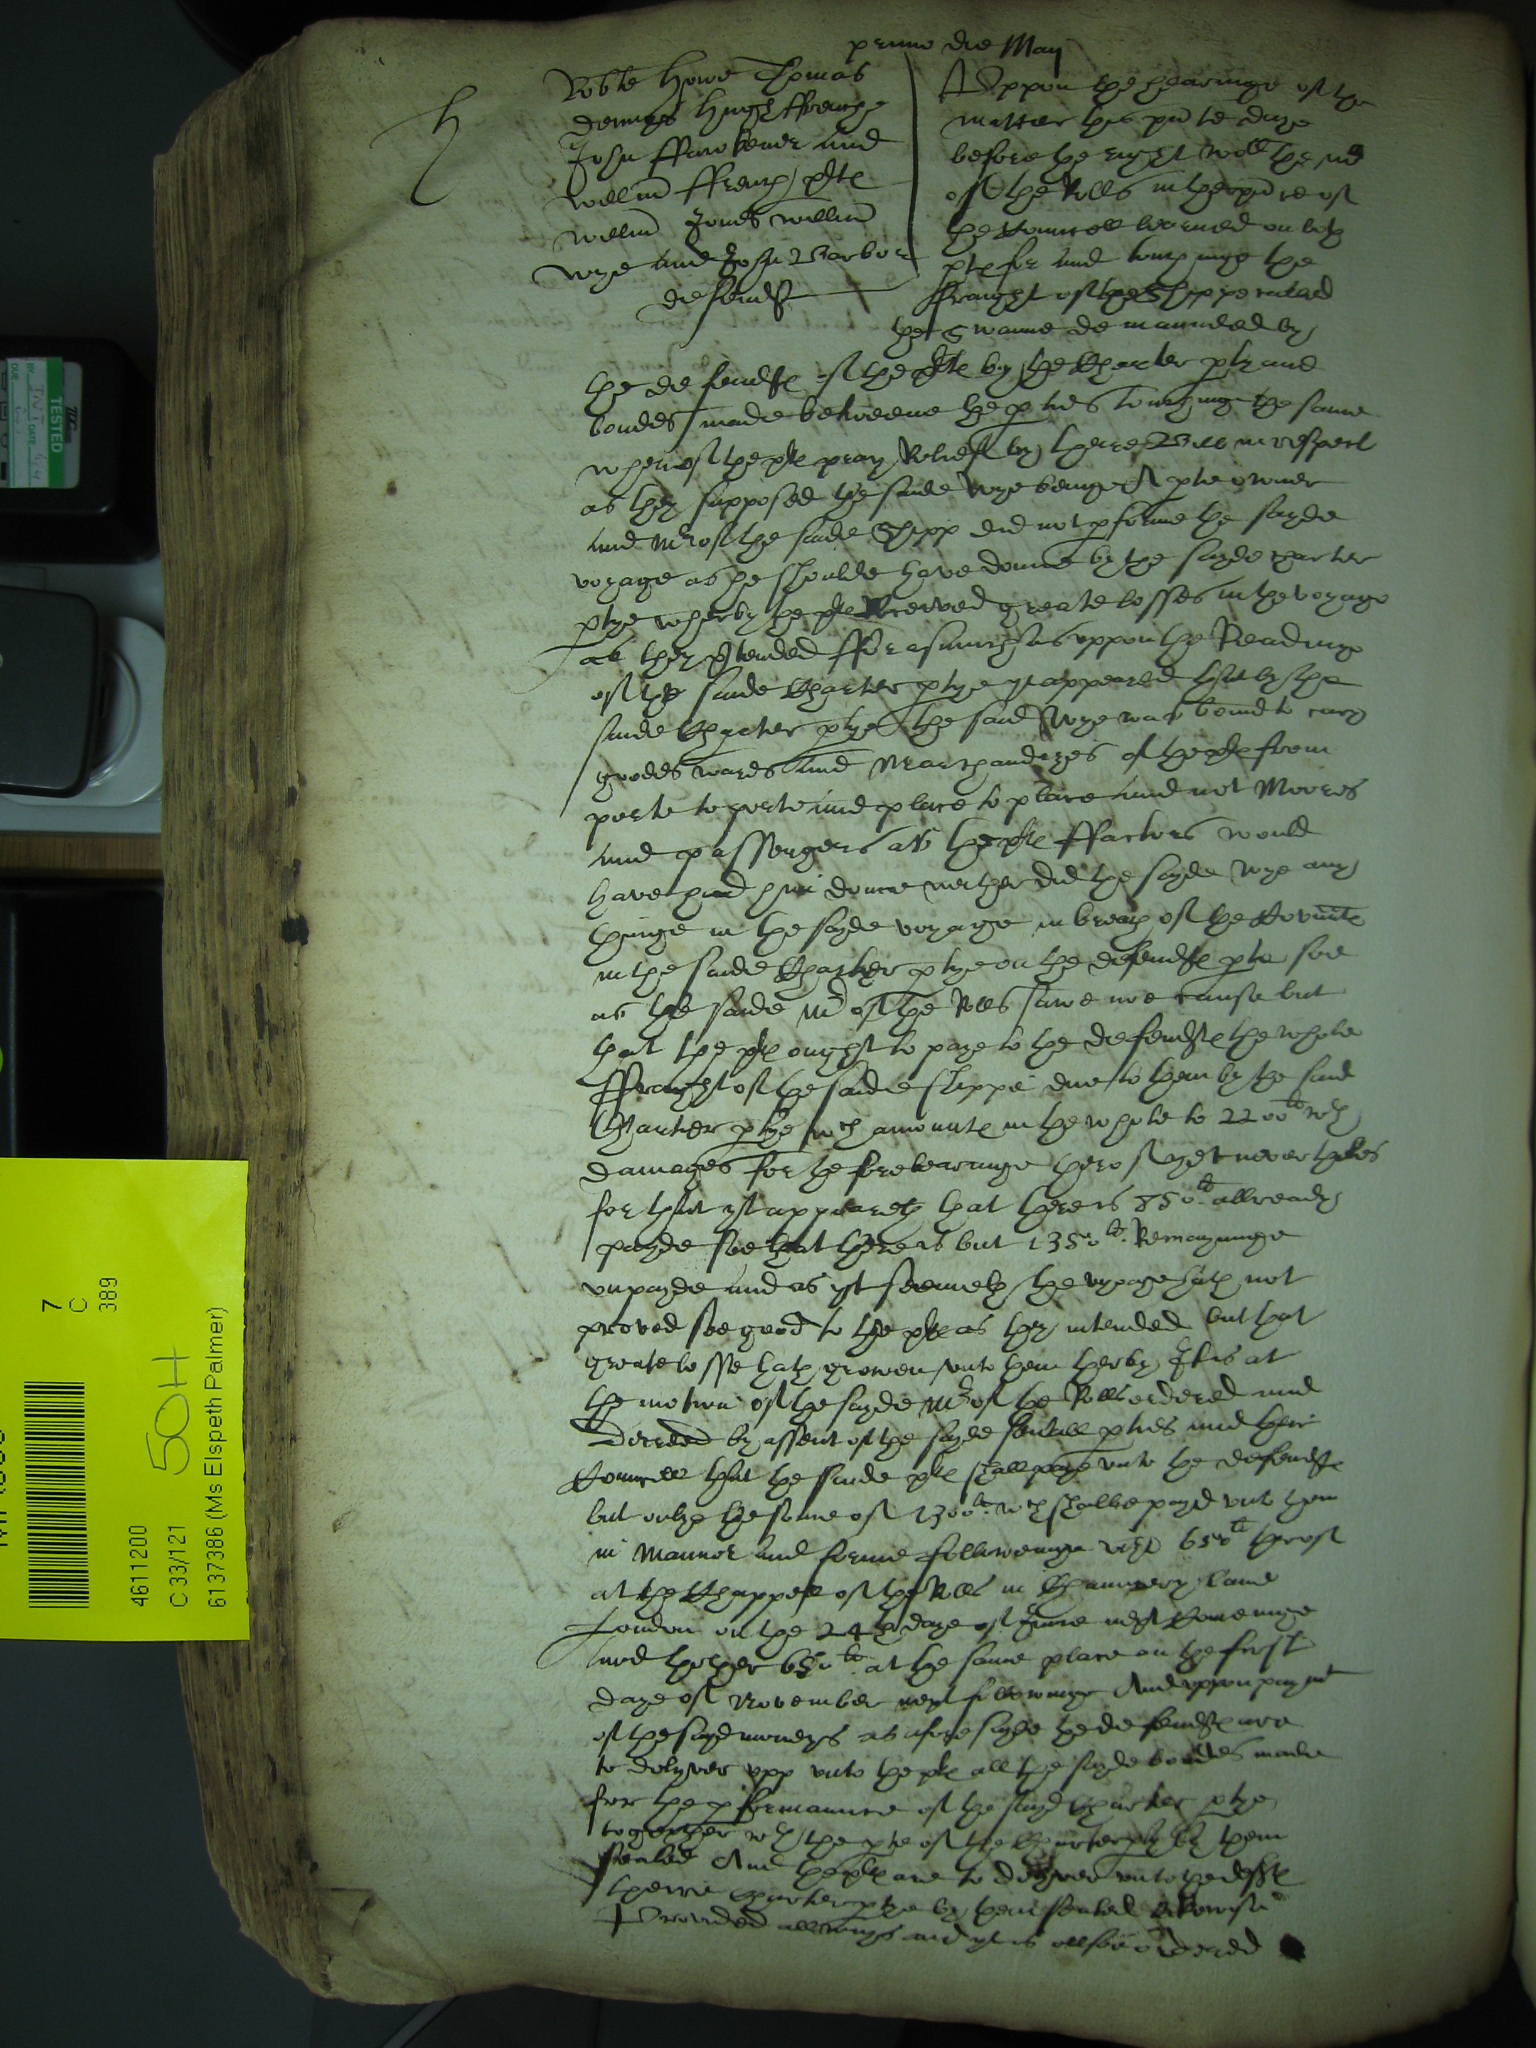 primo die Maij
h
Robte Howe Thomas
Dennys Hugh ffrenche
John ffawkener and
Willm ffrench plte
Willm Jones Willm
Wye and John Barbor
defendts
Uppon the hearinge of the
matter this pnte daye
before the right woll the Mr
of the Rolls in the pnce of
the Councell learned on both
ptes for and touchinge the
ffraight of the Shippe called
the Swanne demaunded by
the defendts of the plts by the Charter pty and
bondes made betweene the pties touching the same
wherof the plts pray Relief by theire Bill in respect
as they supposed the saide Wye beinge pte owner
and Mr of the saide Shipp did not pforme the sayde
voyage as he shoulde have donne by the sayde charter
ptye wherby the plts Receved greate losses in the voyage
as they ptended fforasmuch as uppon the Readinge
of the saide Charter ptye yt appeared that by the
saide Charter ptye the said Wye was bound to cary
goodes wares and Marchandizes of the plts from
porte to porte and place to place and not Moores
and passengers as the plts ffactors would
have had him donne nether did the sayde Wye any
thinge in the sayde voyage in breach of the Covnte
in the saide Charter ptye on the defendts pte soe
as the saide Mr of the Rolls sawe noe cause but
that the plts ought to paye to the defendts the whole
ffraight of the saide shippe due to them by the said
Charter ptye wch amounts in the whole to 2200li wth
damages for the forbearinge therof yet nevertheles
for that yt appeareth that there is 850li allready
payde soe that there is but 1350li Remayninge
unpayde and as yt seemeth the voyage hath not
proved soe good to the plts as they intended but that
greate losse hath growen unto them therby It is at
the motion of the sayde Mr of the Rolls ordered and
decreed by assent of the sayde seuall pties and their
Councell that the saide plts shall paye unto the defendts
but onlye the some of 1300li wch shalbe payd unto them
in Manner and forme followinge vizt 650li therof
at the Chappell of the Rolls in Chauncery lane
London on the 24th daye of June next Comeinge
and thother 650li at the same place on the first
daye of November next followinge And uppon paymt
of the sayd moneys as aforesayde the defendts are
to delyver upp unto the plts all the sayde bondes made
for the pformaunce of the sayd Charter ptye
together wth the pte of the Charter pty by them
sealed And the plts are to delyver unto the defts
theire charter ptye by them sealed likewise
Provided allwayes and yt is allsoe ordered
TESTED
7
C
389
50H
4611200
C 33/121
6137386 (Ms Elspeth Palmer)